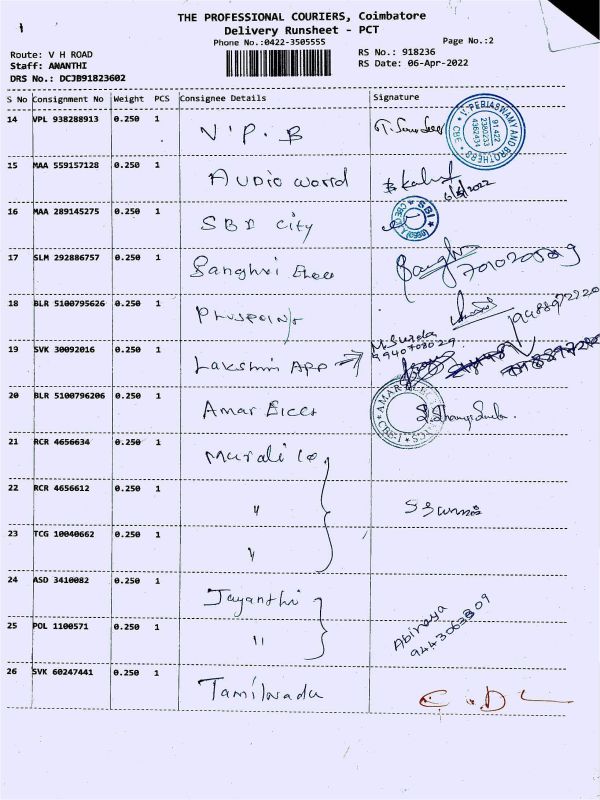 THE PROFESSIONAL COURIERS, Coimbatore
Delivery Runsheet - PCT
Phone No.:0422-3505555
Page No.:2
Route: V H ROAD
RS No.: 918236
Staff: ANANTHI
RS Date: 06-Apr-2022
DRS No.: DCJB91823602
S No Consignment No Weight PCS Consignee Details Signature
14 VPL 938288913 0.250 1 V.P.B
V. PERIASWAMY AND BROTHERS
CBE
91 422
2380233
4382434
15 MAA 559157128 0.250 1 Audio world
16 MAA 289145275 0.250 1 SBI city
SBI
17 SLM 292886757 0.250 1 Sanghvi
Sanghvi
18 BLR 5100795626 0.250 1 Pluspoint
19 SVK 30092016 0.250 1 Lakshmi App
9940708029
20 BLR 5100796206 0.250 1 Amar Elect
AMAR
CBE-1
21 RCR 4656634 0.250 1 Murali Co
22 RCR 4656612 0.250 1 "
23 TCG 10040662 0.250 1 "
24 ASD 3410082 0.250 1 Jayanthi
25 POL 1100571 0.250 1 "
Abinaya
9443063809
26 SVK 60247441 0.250 1 Tamilnadu